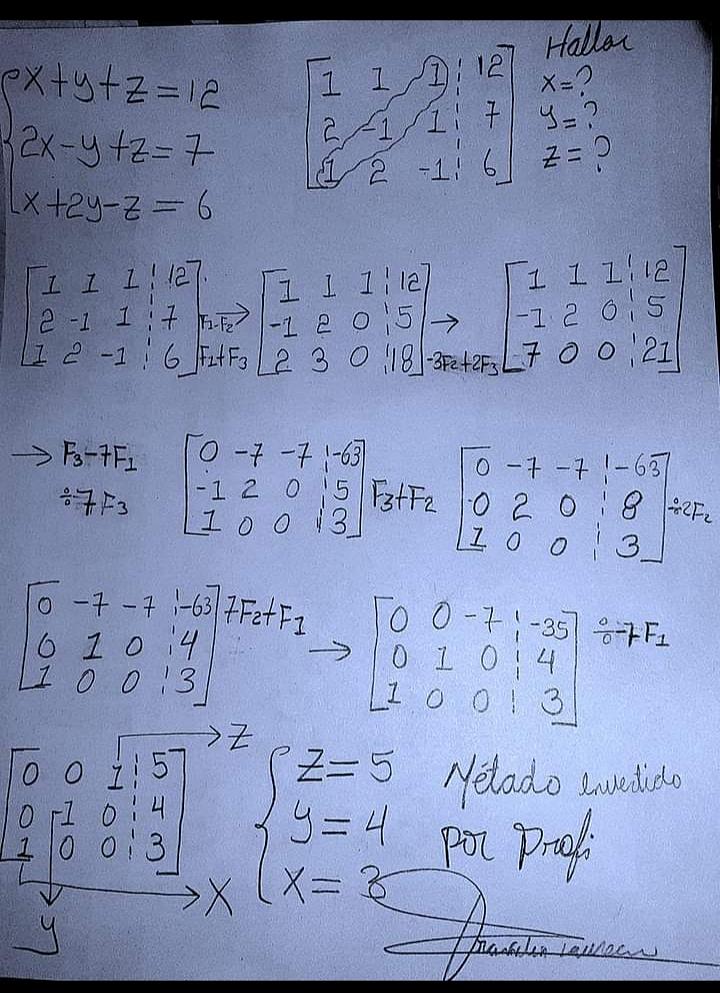 x+y+z=12
2x-y+z=7
x+2y-z=6
[1 1 1 ¦ 12]
[2 -1 1 ¦ 7]
[1 2 -1 ¦ 6]
Hallar
x=?
y=?
z=?
[1 1 1 ¦ 12]
[2 -1 1 ¦ 7] F1-F2 →
[1 2 -1 ¦ 6] F1+F3
[1 1 1 ¦ 12]
[-1 2 0 ¦ 5] →
[2 3 0 ¦ 18] -3F2+2F3
[1 1 1 ¦ 12]
[-1 2 0 ¦ 5]
[7 0 0 ¦ 21]
→ F3-7F1
÷7F3
[0 -7 -7 ¦ -63]
[-1 2 0 ¦ 5] F3+F2
[1 0 0 ¦ 3]
[0 -7 -7 ¦ -63]
[0 2 0 ¦ 8] ÷2F2
[1 0 0 ¦ 3]
[0 -7 -7 ¦ -63] 7F2+F1
[0 1 0 ¦ 4] →
[1 0 0 ¦ 3]
[0 0 -7 ¦ -35] ÷-7F1
[0 1 0 ¦ 4]
[1 0 0 ¦ 3]
→ z
[0 0 1 ¦ 5]
[0 1 0 ¦ 4]
[1 0 0 ¦ 3]
→ x
y
z=5
y=4
x=3
Método invertido
por Profi